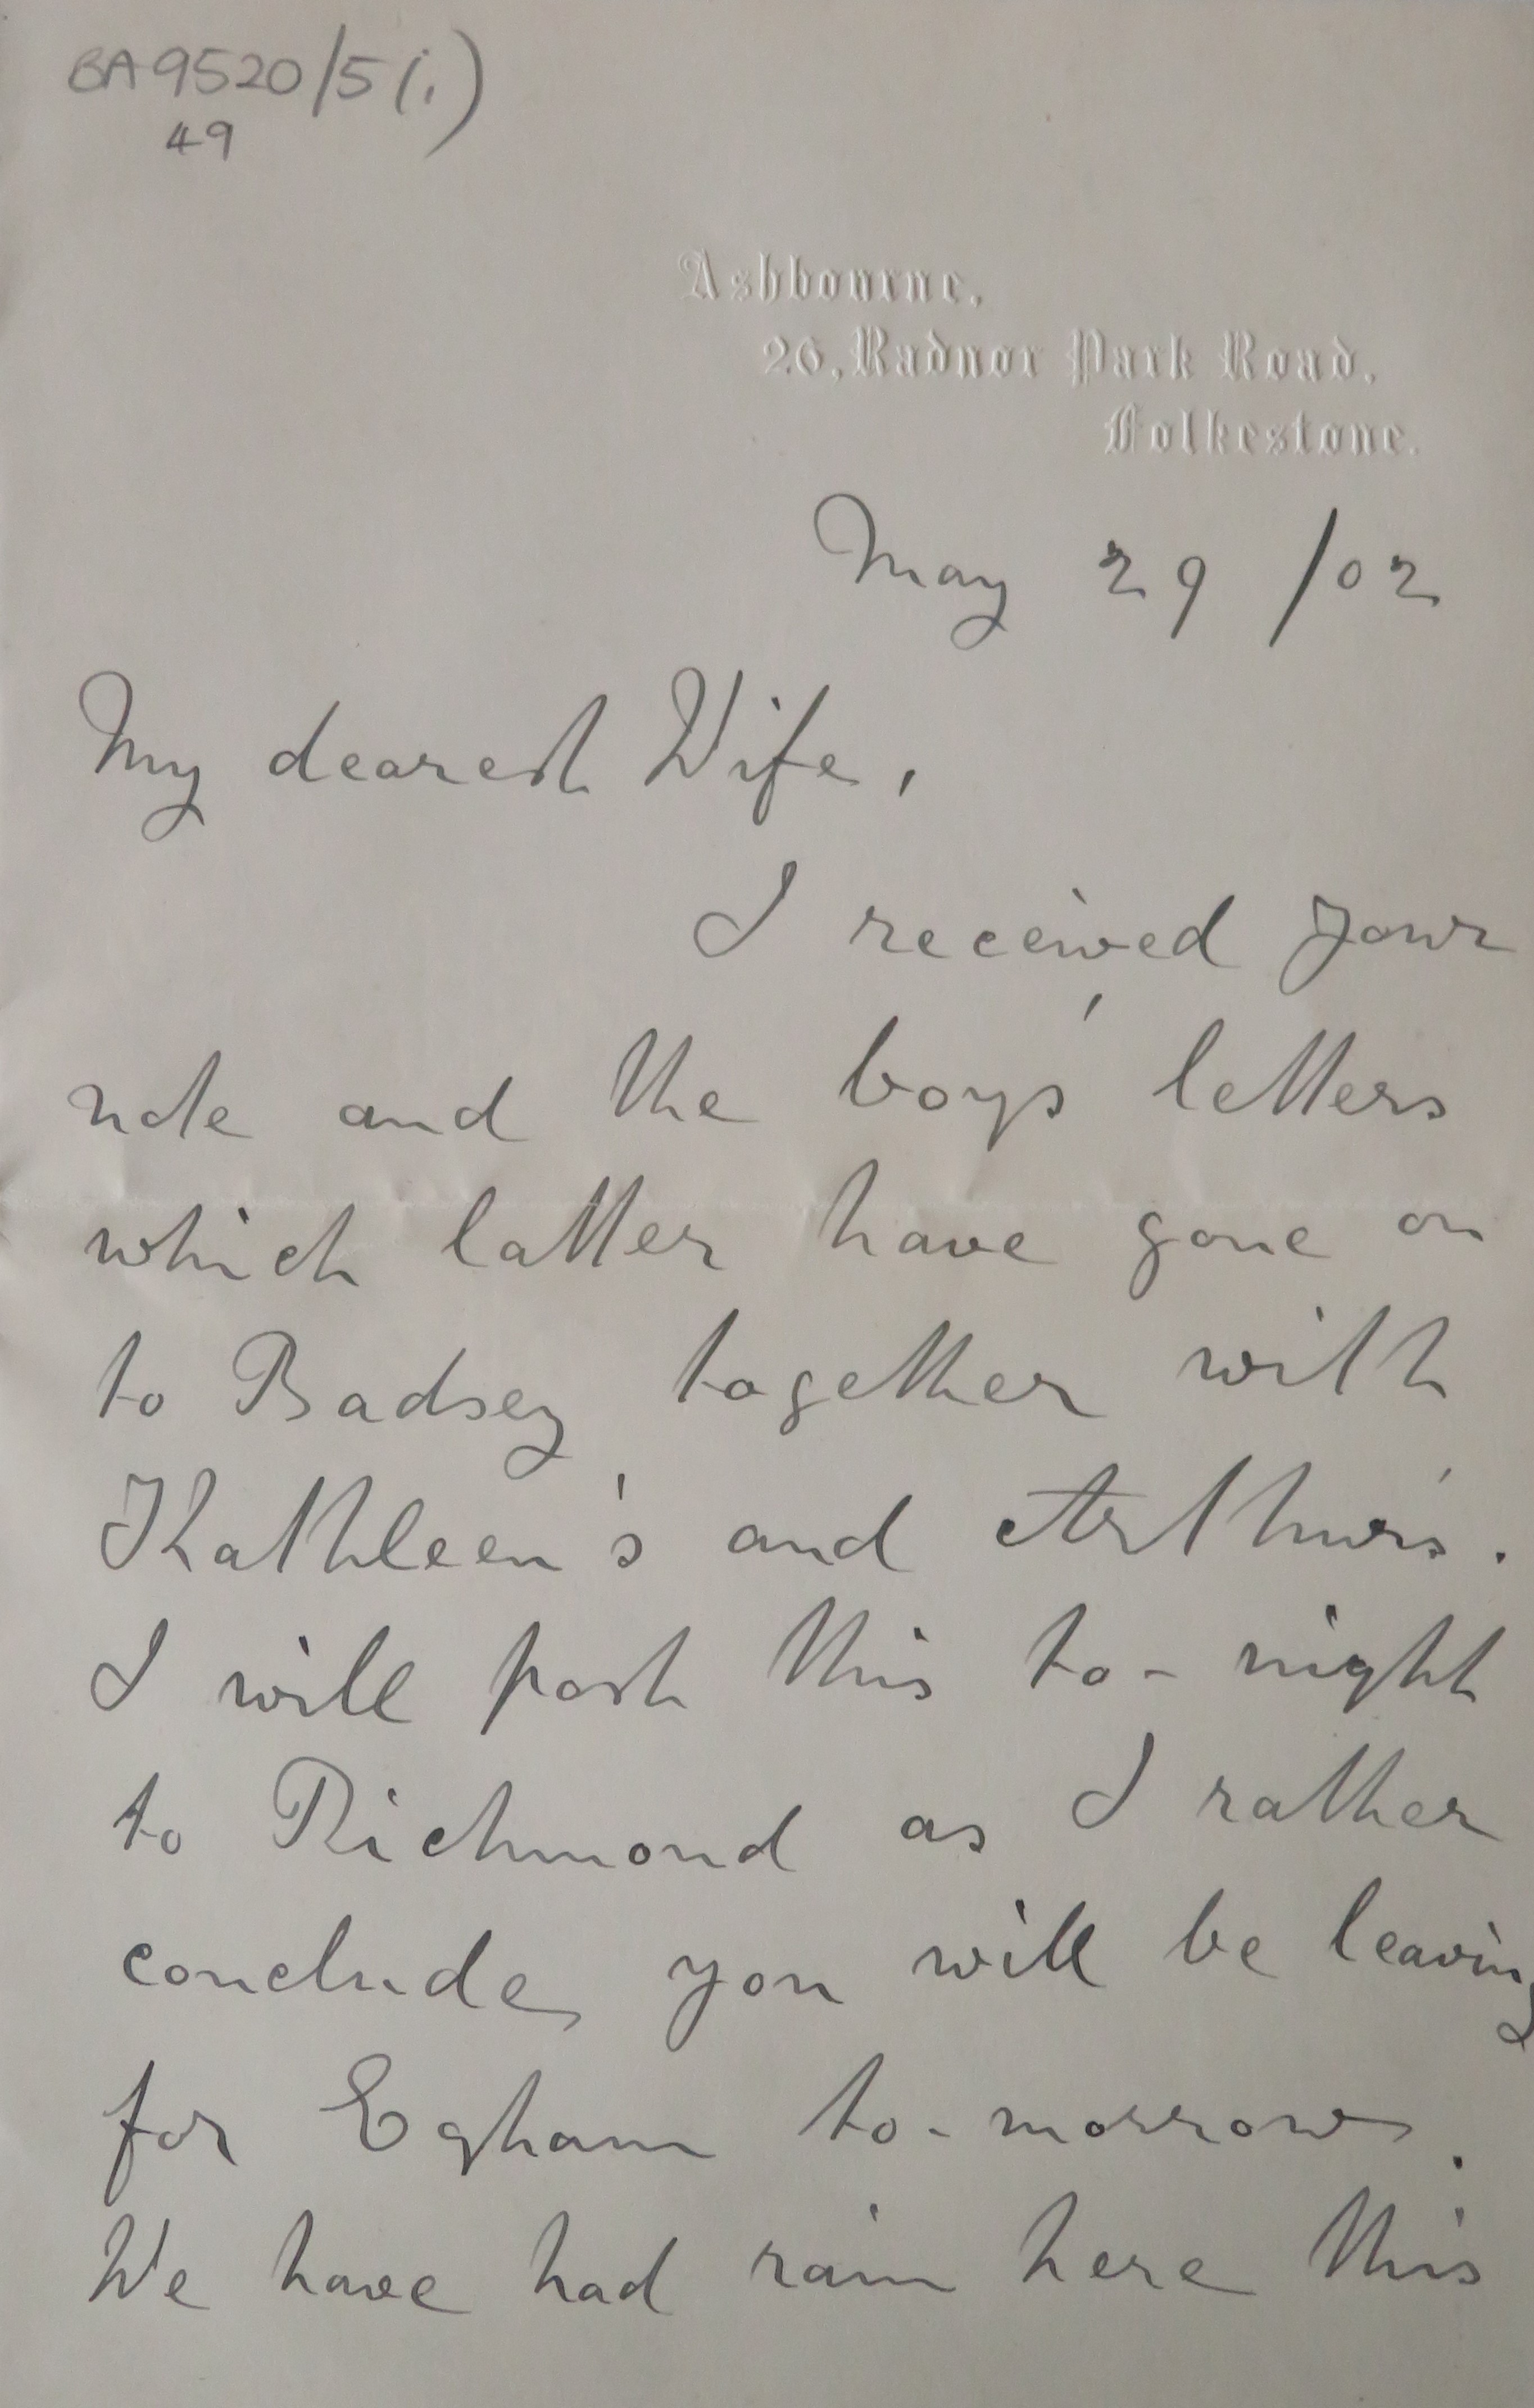 BA9520/5(i.)
49
Ashbourne,
26, Radnor Park Road,
Folkestone.
May 29 /02
My dearest Wife,
I received your
note and the boys' letters
which latter have gone on
to Badsey together with
Kathleen's and Arthur's.
I will post this to-night
to Richmond as I rather
conclude you will be leaving
for Egham to-morrow.
We have had rain here this